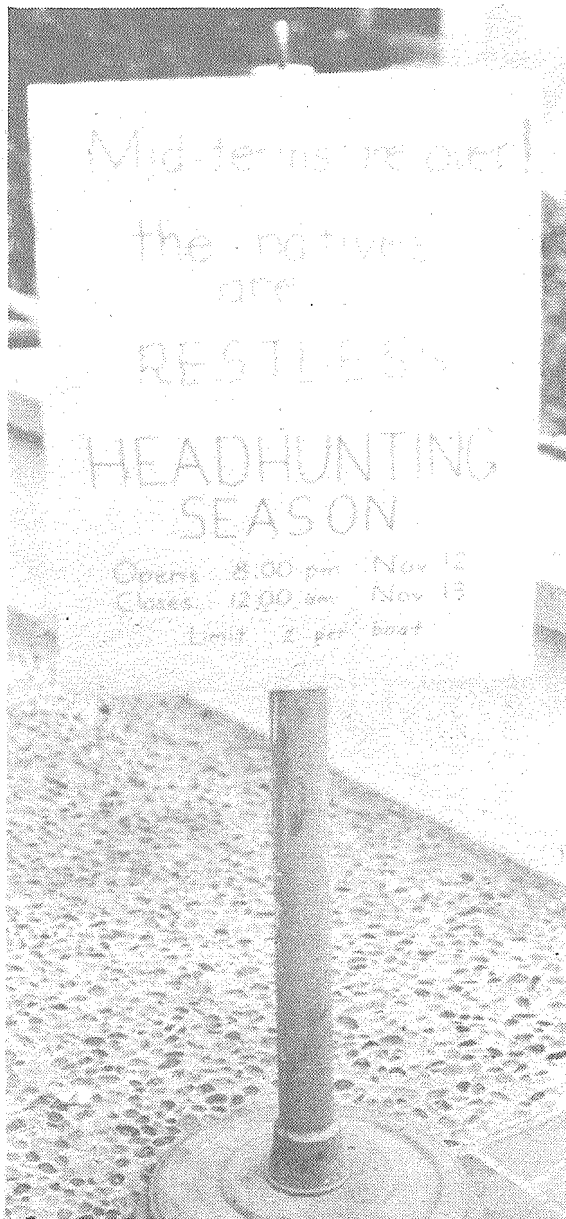 Mid-terms are over!
the natives
are
RESTLESS
HEADHUNTING
SEASON
Opens 8:00 pm Nov 12
Closes 12:00 am Nov 13
Limit 2 per boat